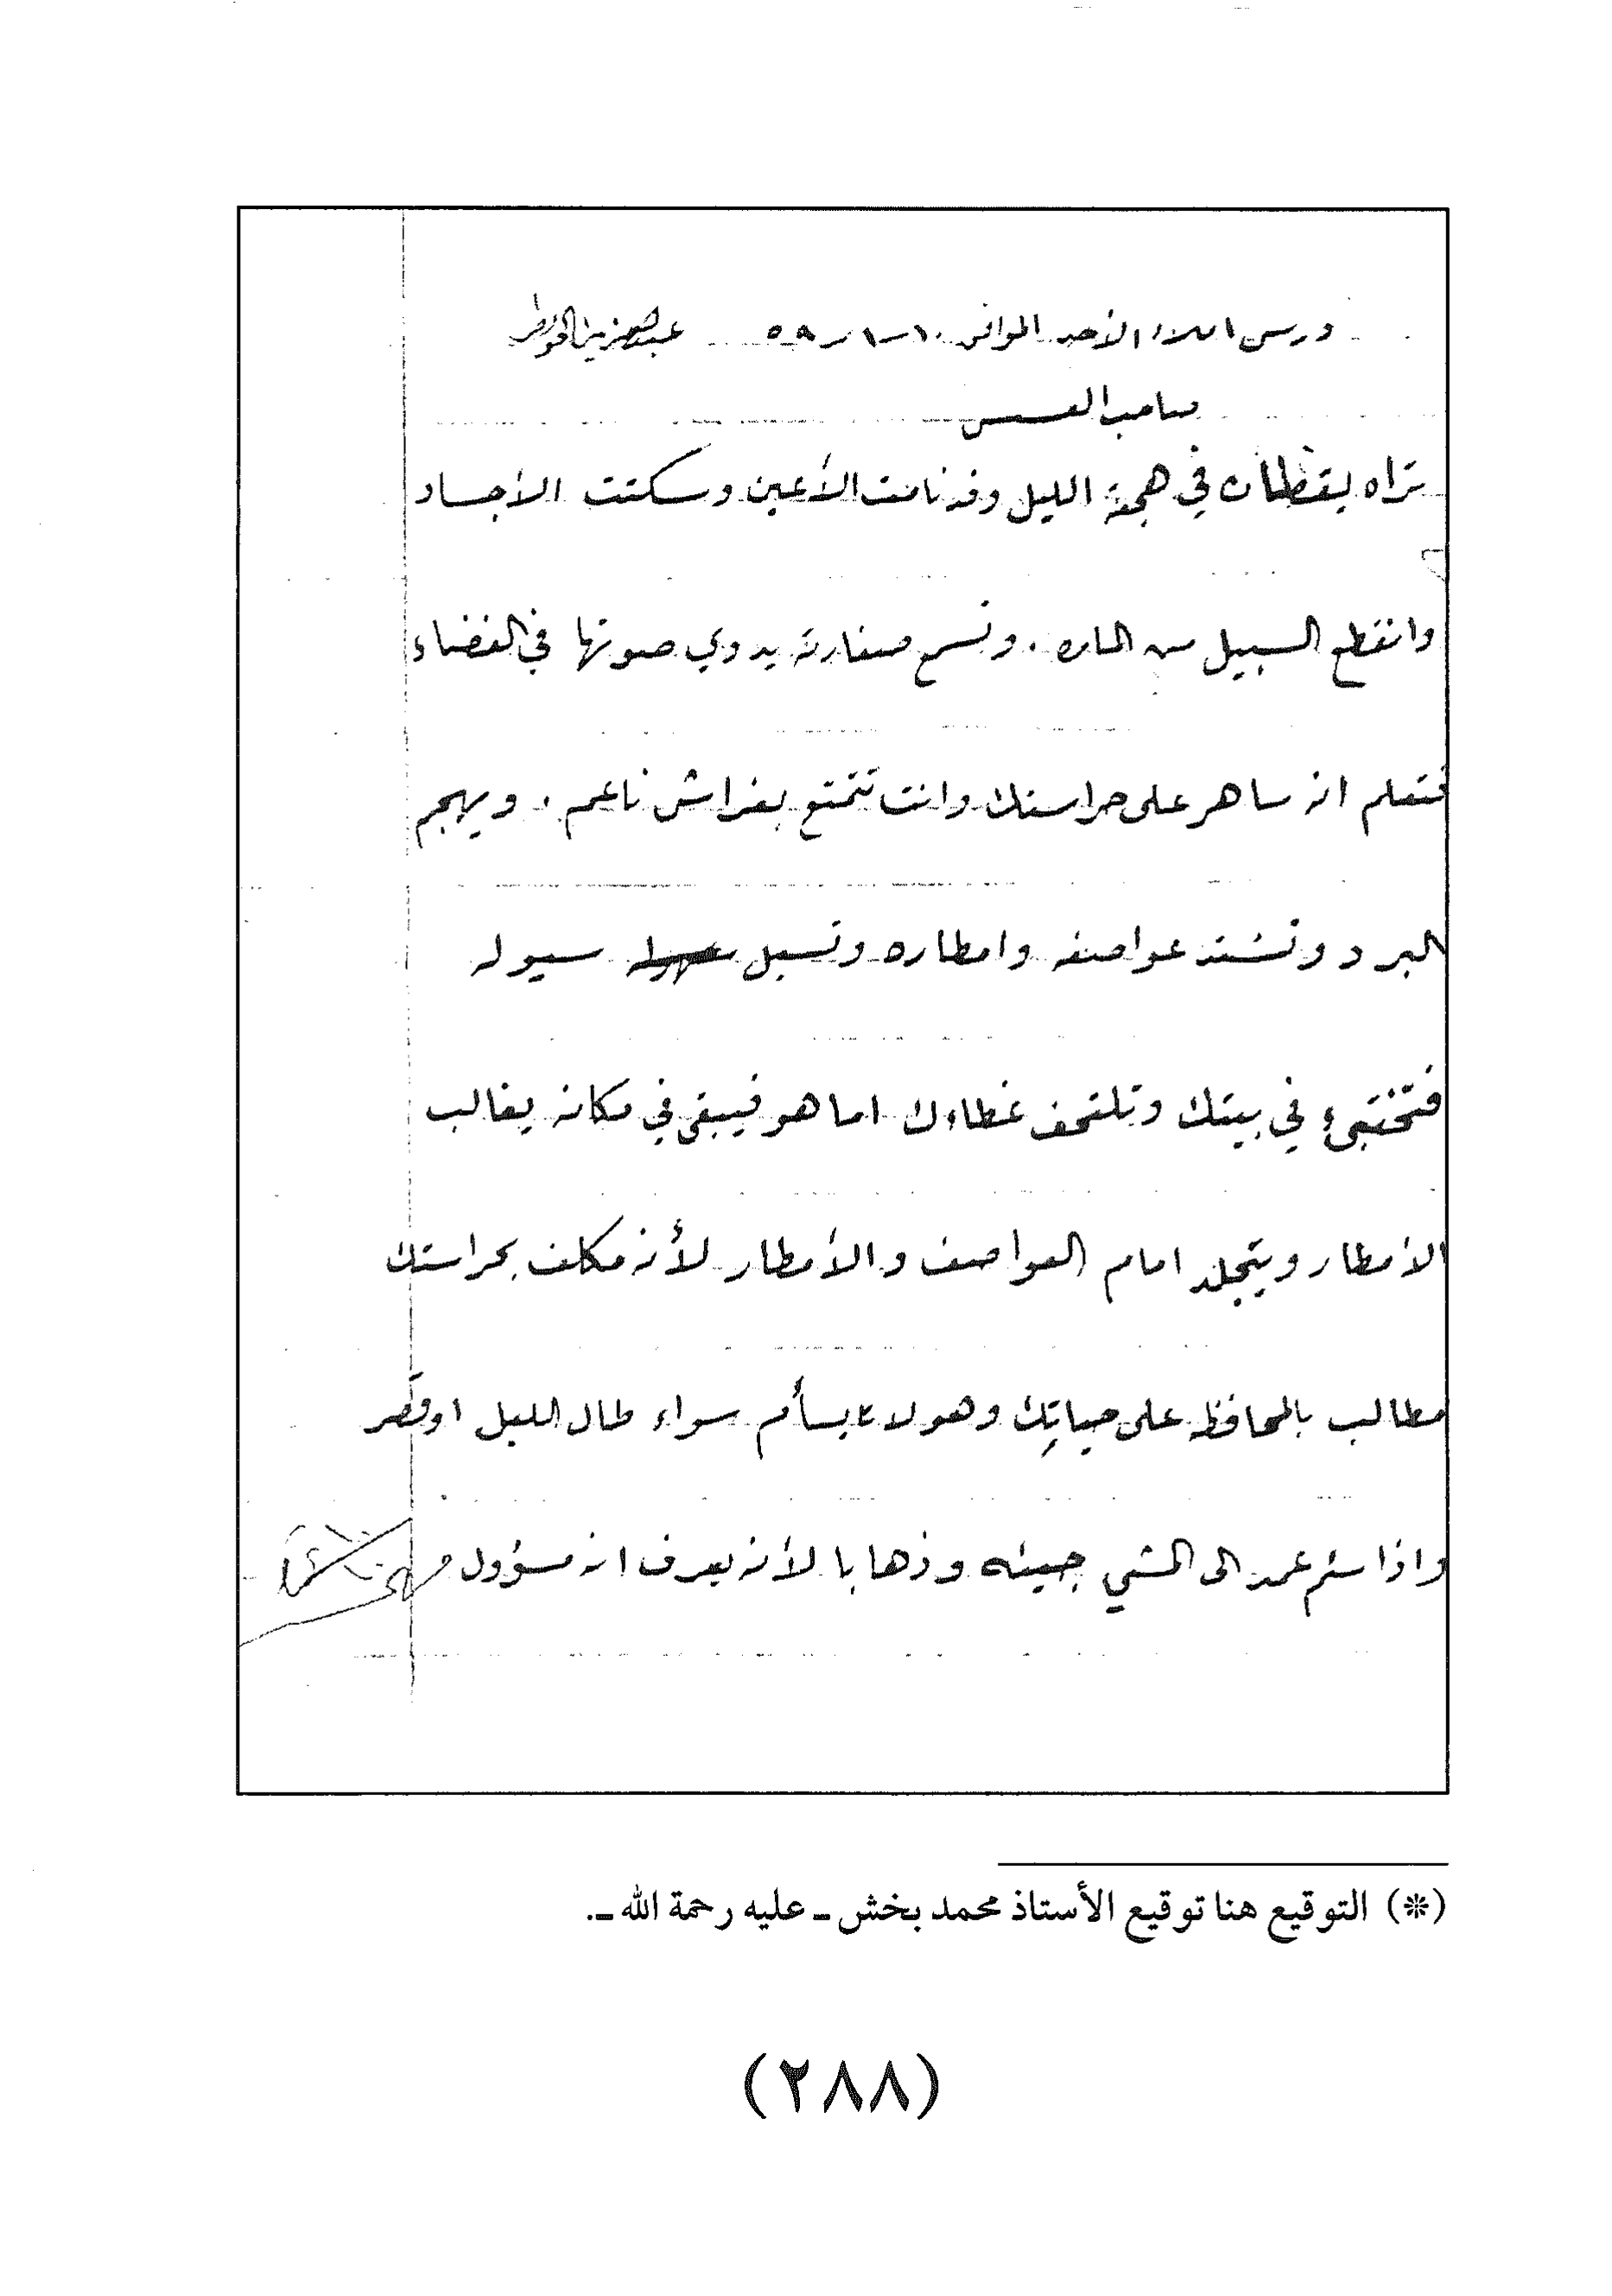 درس املاء الأحد الموافق ١٠-١-٥٩ عبدالعزيز الخويطر
صاحب العسس
تراه يقظان في هجمة الليل وقد نامت الأعين وسكتت الأجساد
وانقطع السبيل من الماره . وتسمع صفارته يدوي صوتها في الفضاء
فتعلم انه ساهر على حراستك وانت تتمتع بفراش ناعم . ويهجم
البرد وتشتد عواصفه وامطاره وتسيل سيوله
فتختبئ في بيتك وتلتحف غطاءك اما هو فيبقى في مكانه يغالب
الأمطار ويتجلد امام العواصف والأمطار لأنه مكلف بحراستك
مطالب بالمحافظه على حياتك وهو لا يسأم سواء طال الليل او قصر
واذا سئم عمد الى المشي جيئه وذهابا لأنه يعرف انه مسؤول
(*) التوقيع هنا توقيع الأستاذ محمد بخش ـ عليه رحمة الله ـ.
(٢٨٨)